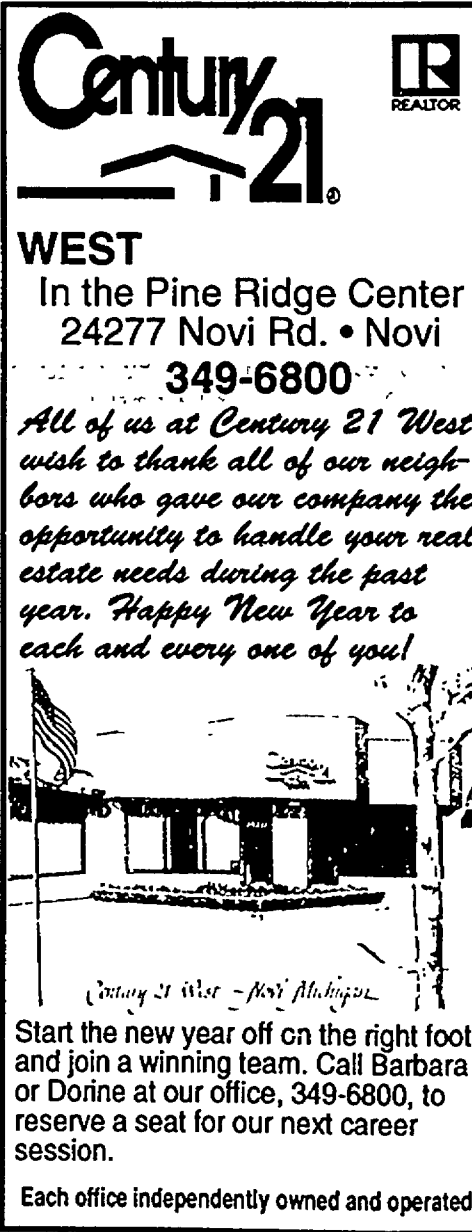 Century 21®
REALTOR
WEST
In the Pine Ridge Center
24277 Novi Rd. • Novi
349-6800
All of us at Century 21 West
wish to thank all of our neigh-
bors who gave our company the
opportunity to handle your real
estate needs during the past
year. Happy New Year to
each and every one of you!
Century 21 West - Novi Michigan
Start the new year off on the right foot
and join a winning team. Call Barbara
or Dorine at our office, 349-6800, to
reserve a seat for our next career
session.
Each office independently owned and operated